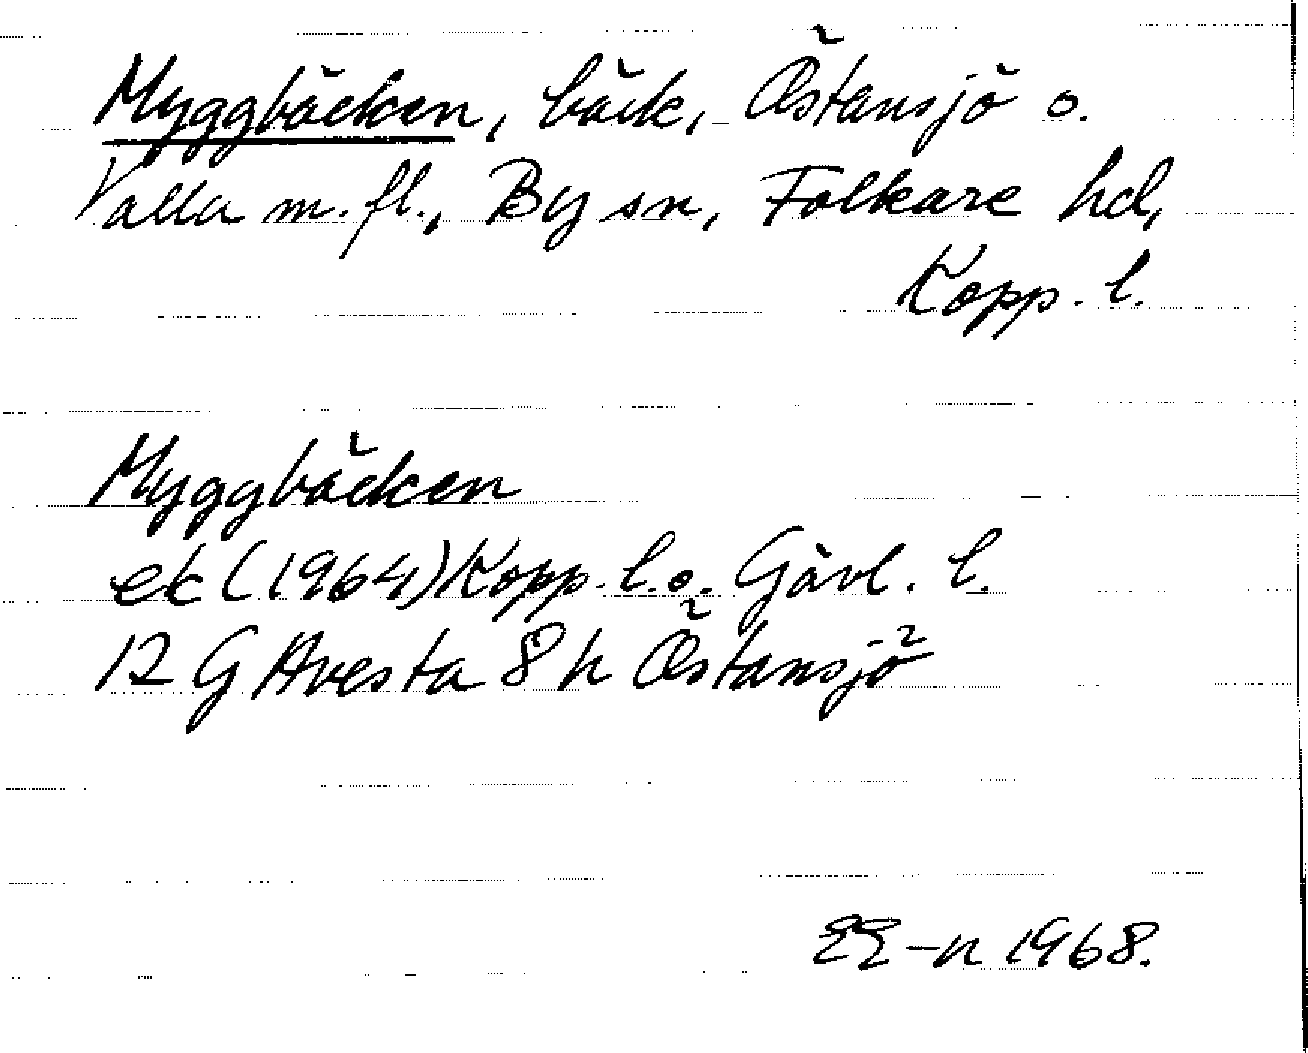 Myggbäcken, bäck, Östansjö o.
Valla m. fl., By sn, Folkare hd,
Kopp. l.
Myggbäcken
ek (1964) Kopp. l. o. Gävl. l.
12 G Avesta 8 h Östansjö
EE-n 1968.